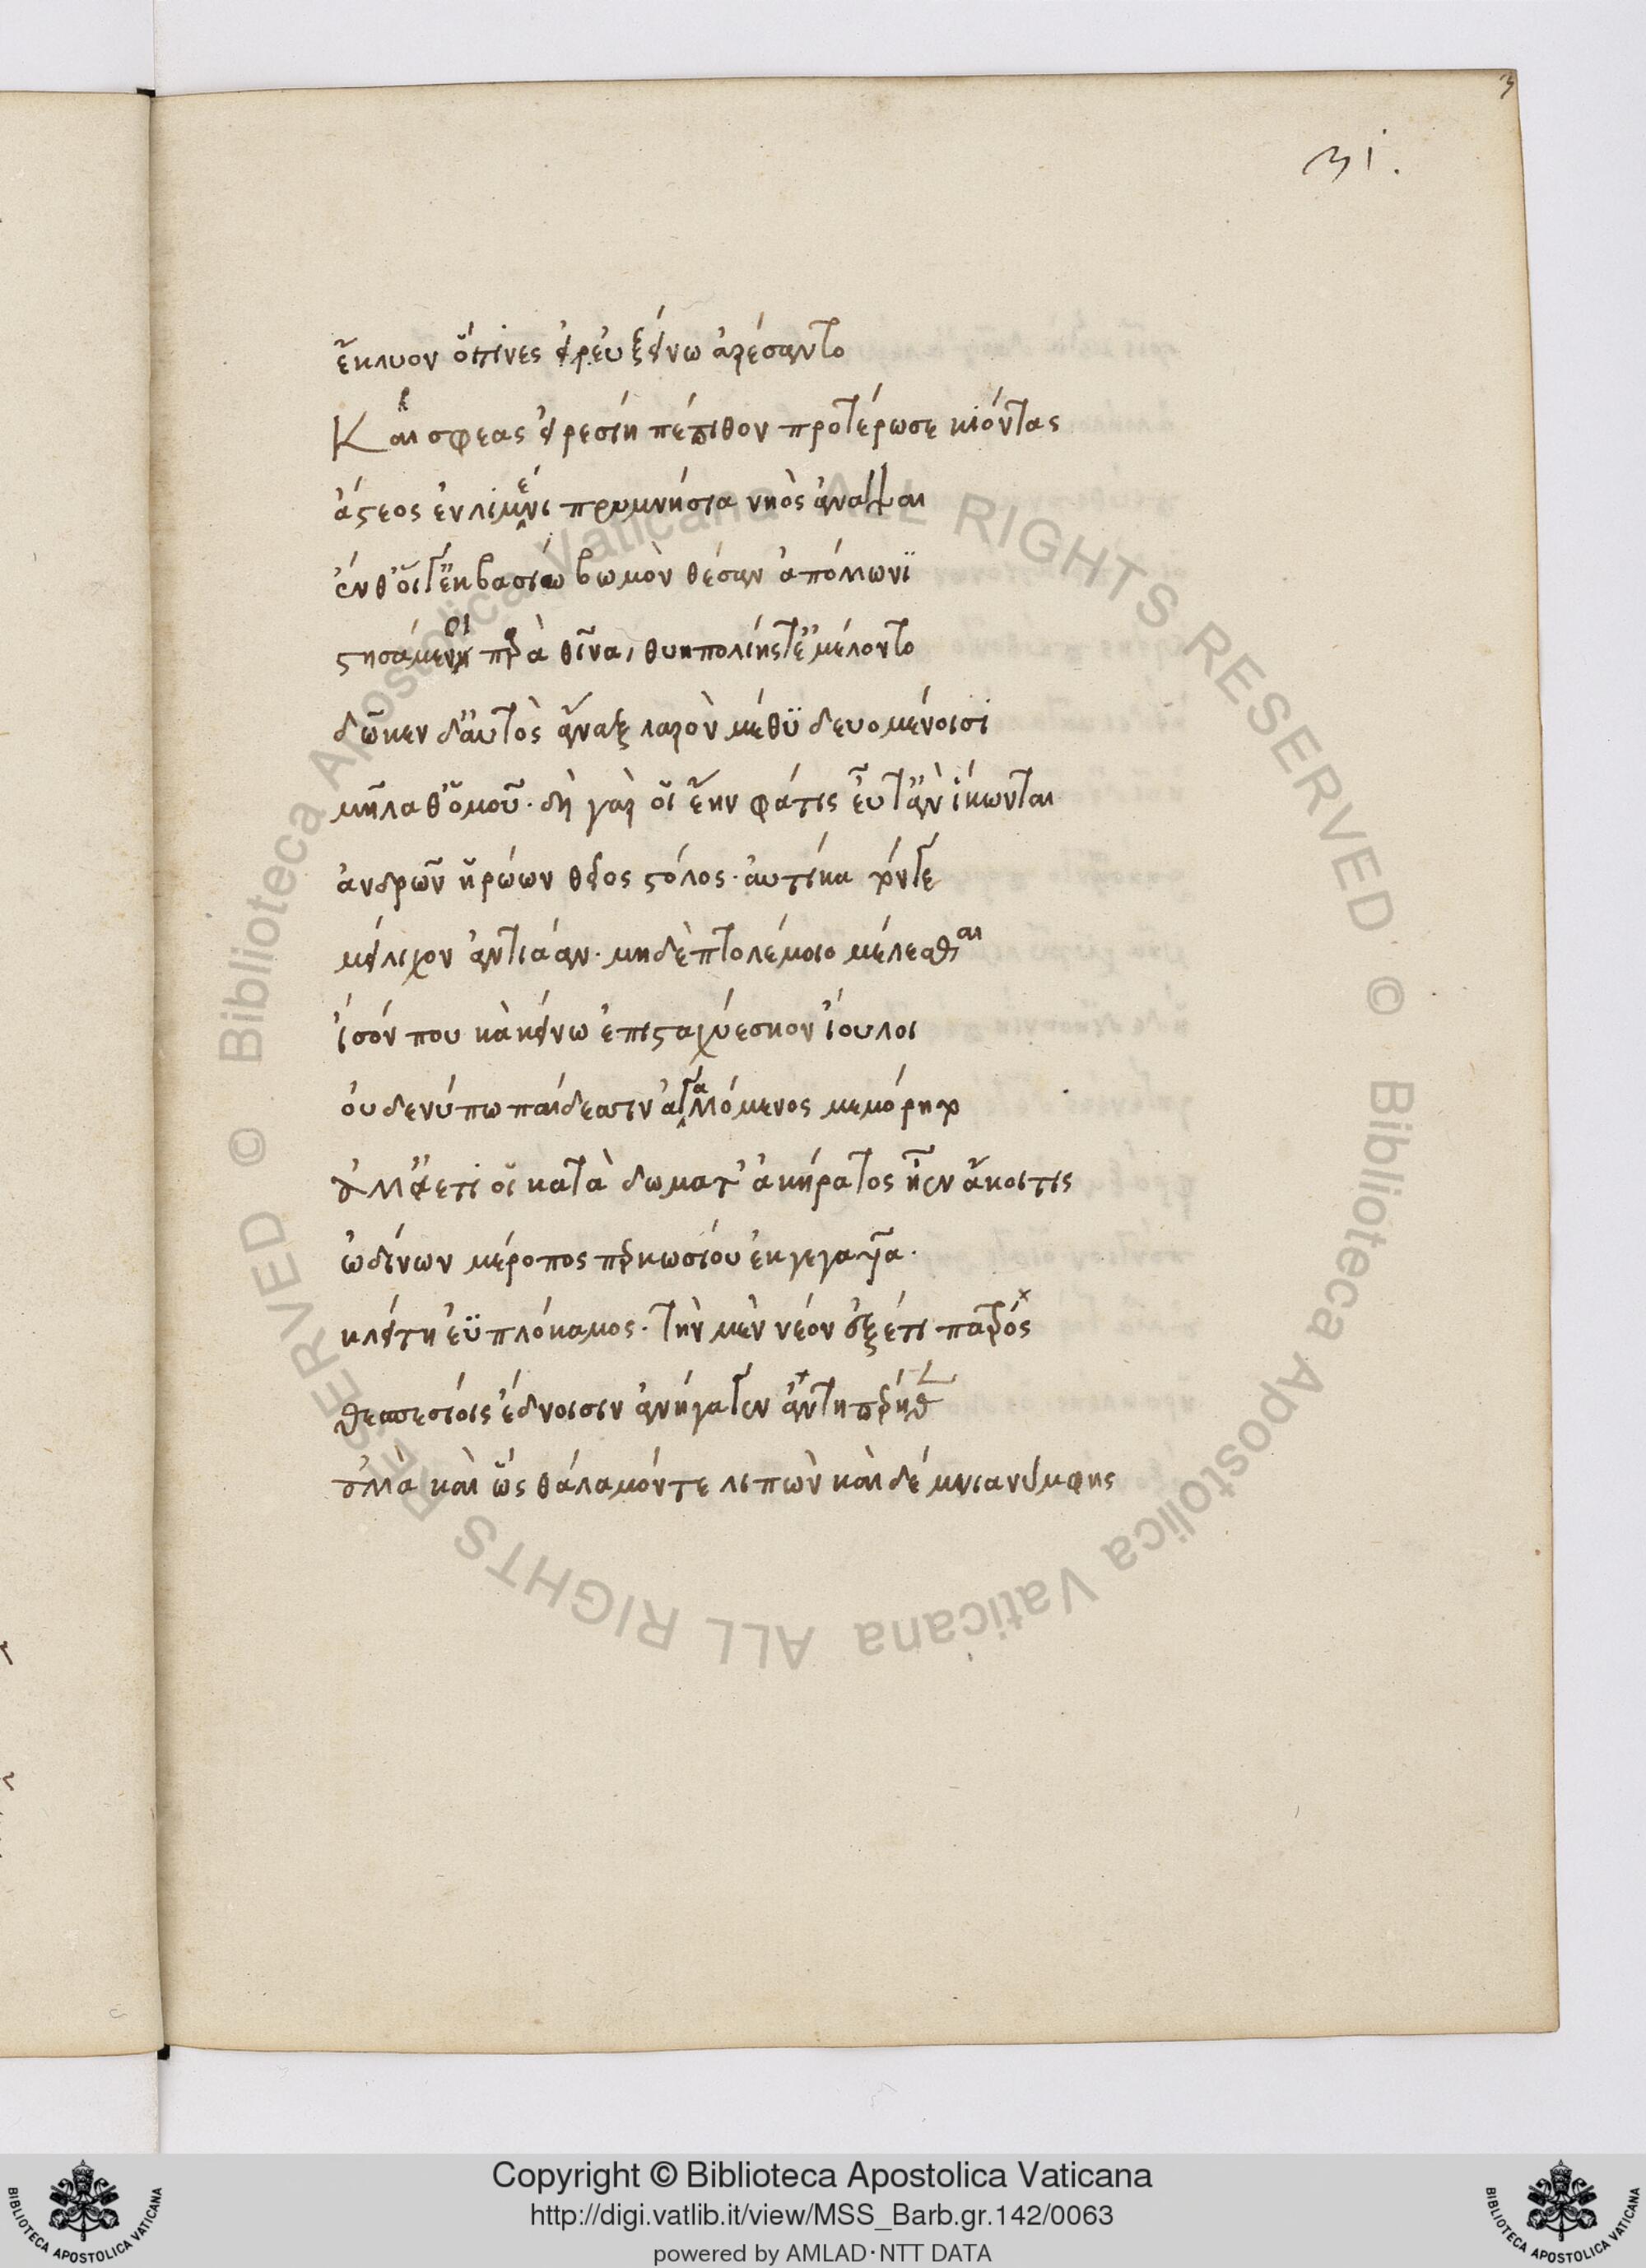 31.
ἔκλυον ὅιτινες εἶεν ἐυξείνω ἀρέσαντο
Καί σφεας εἰρεσίη πέπιθον προτέρωσε κιόντας
ἄστεος ἐν λιμένι πρυμνήσια νηὸς ἀνάψαι
ἔνθ' ὅιγ' ἐκβασίω βωμὸν θέσαν ἀπόλλωνϊ
στησάμενοι παρὰ θῖνα, θυηπολίης τ' ἐμέλοντο
δῶκεν δ' ἀυτὸς ἄναξ λαρὸν μέθϋ δευομένοισι
μῆλα θ' ὁμοῦ. δὴ γάρ ὅι ἔην φάτις εὖτ' ἂν ἵκωνται
ἀνδρῶν ἡρώων θεῖος στόλος. ἀυτίκα τόνγε
μείλιχον ἀντιάαν. μηδὲ πτολέμοιο μέλεσθαι
ἶσόν που κὰκείνω ἐπισταχύεσκον ἴουλοι
ὀυδενύπω παίδεσσιν ἀγαλλόμενος μεμόρητο
ἀλλ' ἔτι ὅι κατὰ δωματ' ἀκήρατος ἦεν ἄκοιτις
ὠδίνων μέροπος περκωσίου ἐκγεγαυῖα.
κλείτη ἐϋπλόκαμος. τὴν μὲν νέον ἐξέτι πατρός
θεσπεσίοις ἕδνοισιν ἀνήγαγεν ἀντιπέρηθεν
ἀλλὰ καὶ ὧς θάλαμόντε λιπὼν καὶ δέμνια νύμφης
Copyright © Biblioteca Apostolica Vaticana
http://digi.vatlib.it/view/MSS_Barb.gr.142/0063
powered by AMLAD·NTT DATA
BIBLIOTECA APOSTOLICA VATICANA
BIBLIOTECA APOSTOLICA VATICANA
© Biblioteca Apostolica Vaticana ALL RIGHTS RESERVED
© Biblioteca Apostolica Vaticana ALL RIGHTS RESERVED